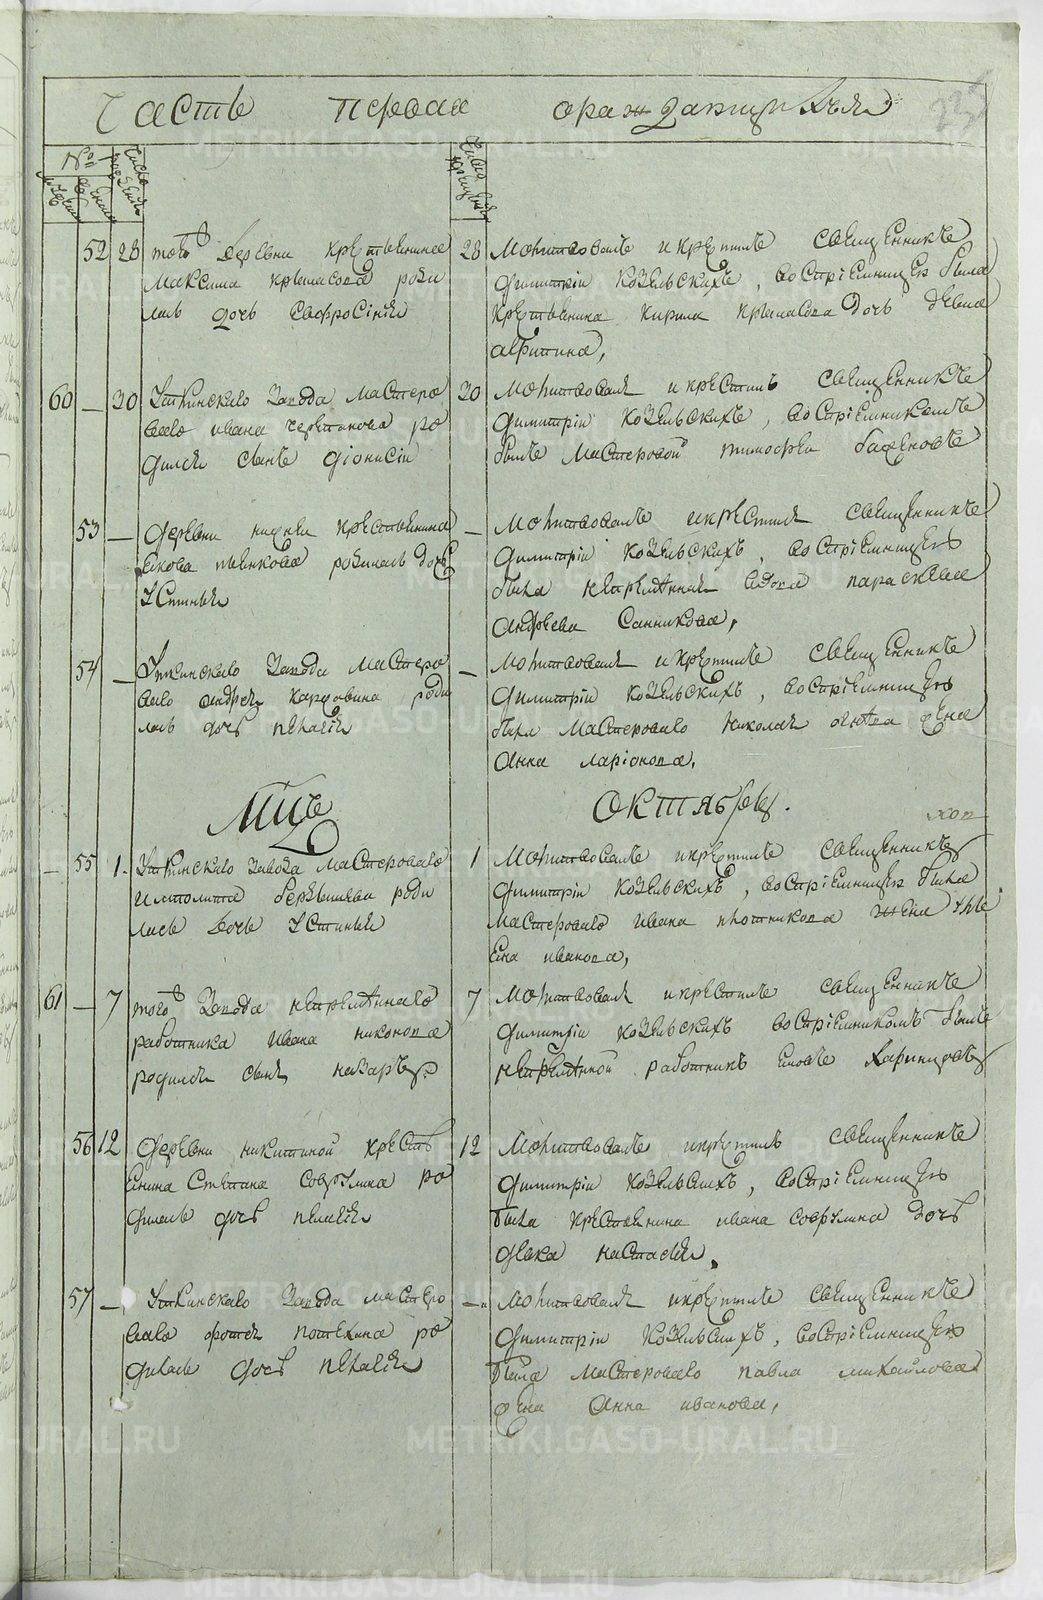 Часть первая о раждающихъся
№
мужеска
женска
число рожденiя
число крещенiя
52 28 того деревни крестьянина
Максима Крыласова роди
лась дочь Евфросiнiя
28 Молитвовалъ и крестилъ священникъ
Димитрiи Козельскихъ, воспрiемницей была
крестьянина Кирила Крыласова дочь девка
60 — 30 Уткинскаго завода мастеро
ваго Ивана Черепанова ро
дился сынъ Дiонисiи
30 Молитвовалъ и крестилъ священникъ
Димитрiи Козельскихъ, воспрiемникомъ
былъ мастеровой Тимофеи Баженовъ
53 — Деревни Нижнеи крестьянина
Якова Пьянкова родилась дочь
Устинья
— Молитвовалъ и крестилъ священникъ
Димитрiи Козельскихъ, воспрiемницею
была непременная вдова Параскевья
Андреева Санникова,
54 — Уткинскаго завода мастеро
ваго Андрея роди
лась дочь Пелагiя
— Молитвовалъ и крестилъ священникъ
Димитрiи Козельскихъ, воспрiемницею
была мастероваго Николая жена
Анна Ларiонова,
Мцъ Октябрь.
— 55 1. Уткинскаго завода мастероваго
Иполита роди
лась дочь Устинья
1 Молитвовалъ и крестилъ священникъ
Димитрiи Козельскихъ, воспрiемницей была
мастероваго Ивана Плотникова жена Улья
на Иванова,
61 — 7 того завода непременнаго
работника Ивана Никонова
родился сынъ Назаръ.
7 Молитвовалъ и крестилъ священникъ
Димитрiи Козельскихъ воспрiемникомъ былъ
непременной работникъ
56 12 Деревни Никитиной кресть
янина Степана ро
дилась дочь Пелагiя
12 Молитвовалъ и крестилъ священникъ
Димитрiи Козельскихъ, воспрiемницею
была крестьянина Ивана дочь
девка Настасья.
57 — Уткинскаго завода мастеро
ваго Фотея Потехина ро
дилась дочь Пелагiя
— Молитвовалъ и крестилъ священникъ
Димитрiи Козельскихъ, воспрiемницею
была мастероваго Павла Михайлова
жена Анна Иванова,
METRIKI.GASO-URAL.RU